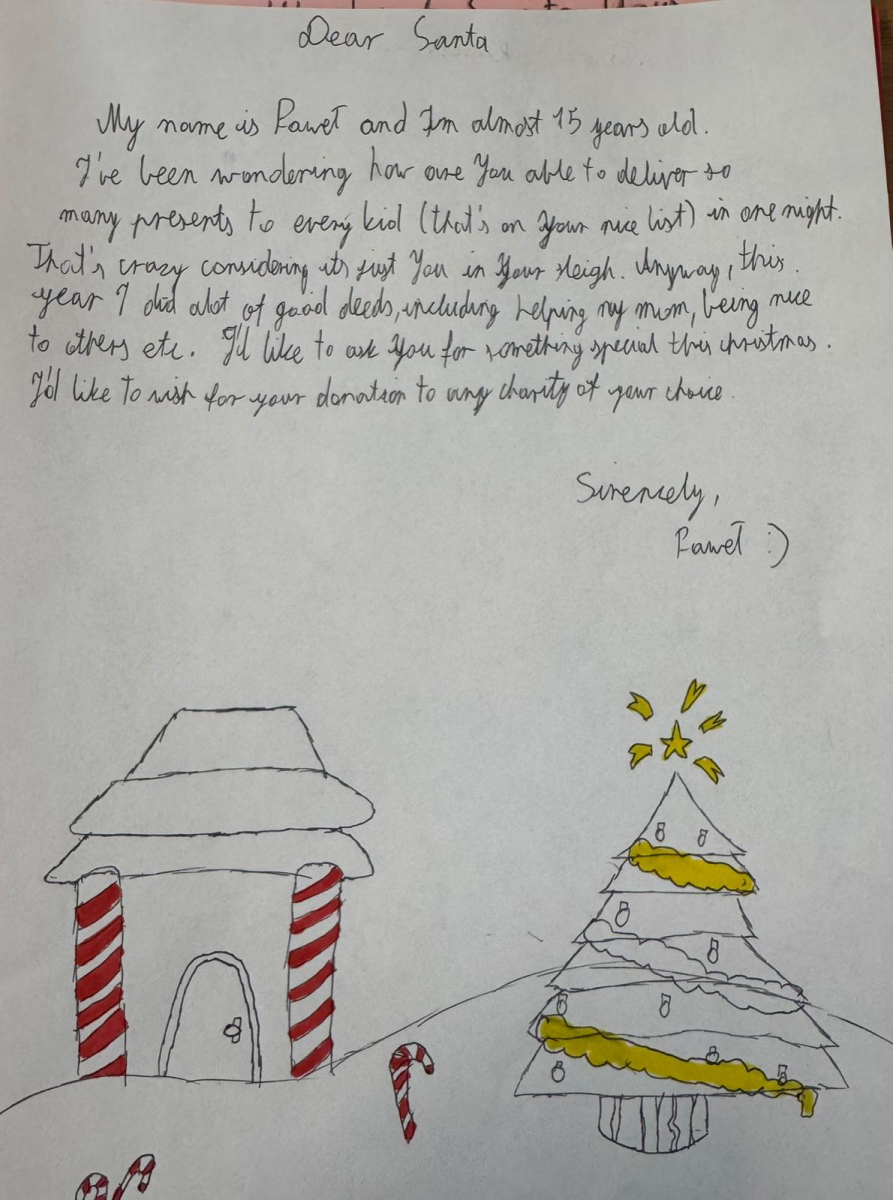 Dear Santa
My name is Paweł and Im almost 15 years old.
I've been wondering how are You able to deliver so
many presents to every kid (that's on Your nice list) in one night.
That's crazy considering its just You in Your sleigh. Anyway, this
year I did alot of good deeds, including helping my mum, being nice
to others etc. I'd like to ask You for something special this christmas.
I'd like to wish for your donation to any charity of your choice.
Sirencely,
Paweł :)